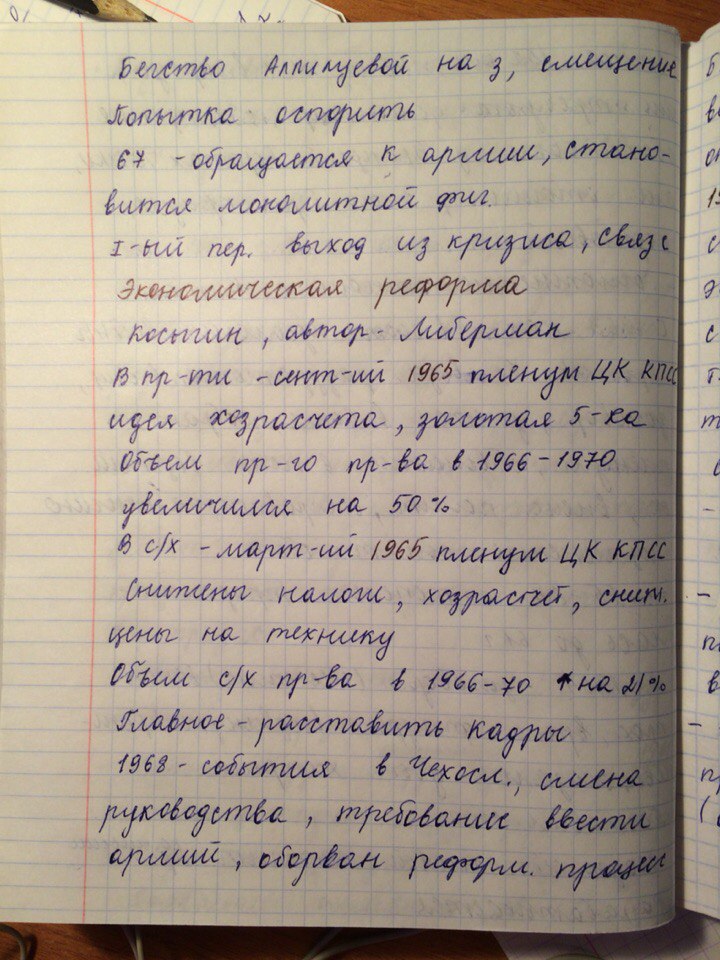 Бегство Аллилуевой на з, смещение
Попытка оспорить
67 - обращается к армии, стано-
вится монолитной фиг.
I-ый пер. выход из кризиса, связ с
Экономическая реформа
Косыгин, автор - Либерман
В пр-ти - сент-ий 1965 пленум ЦК КПСС
идея хозрасчета, золотая 5-ка
Объем пр-го пр-ва в 1966-1970
увеличился на 50%
В с/х - март-ий 1965 пленум ЦК КПСС
Снижены налоги, хозрасчет, сниж.
цены на технику
Объем с/х пр-ва в 1966-70 ↑ на 21%
Главное - расставить кадры
1968 - события в Чехосл., смена
руководства, требование ввести
армий, оборван реформ. процесс